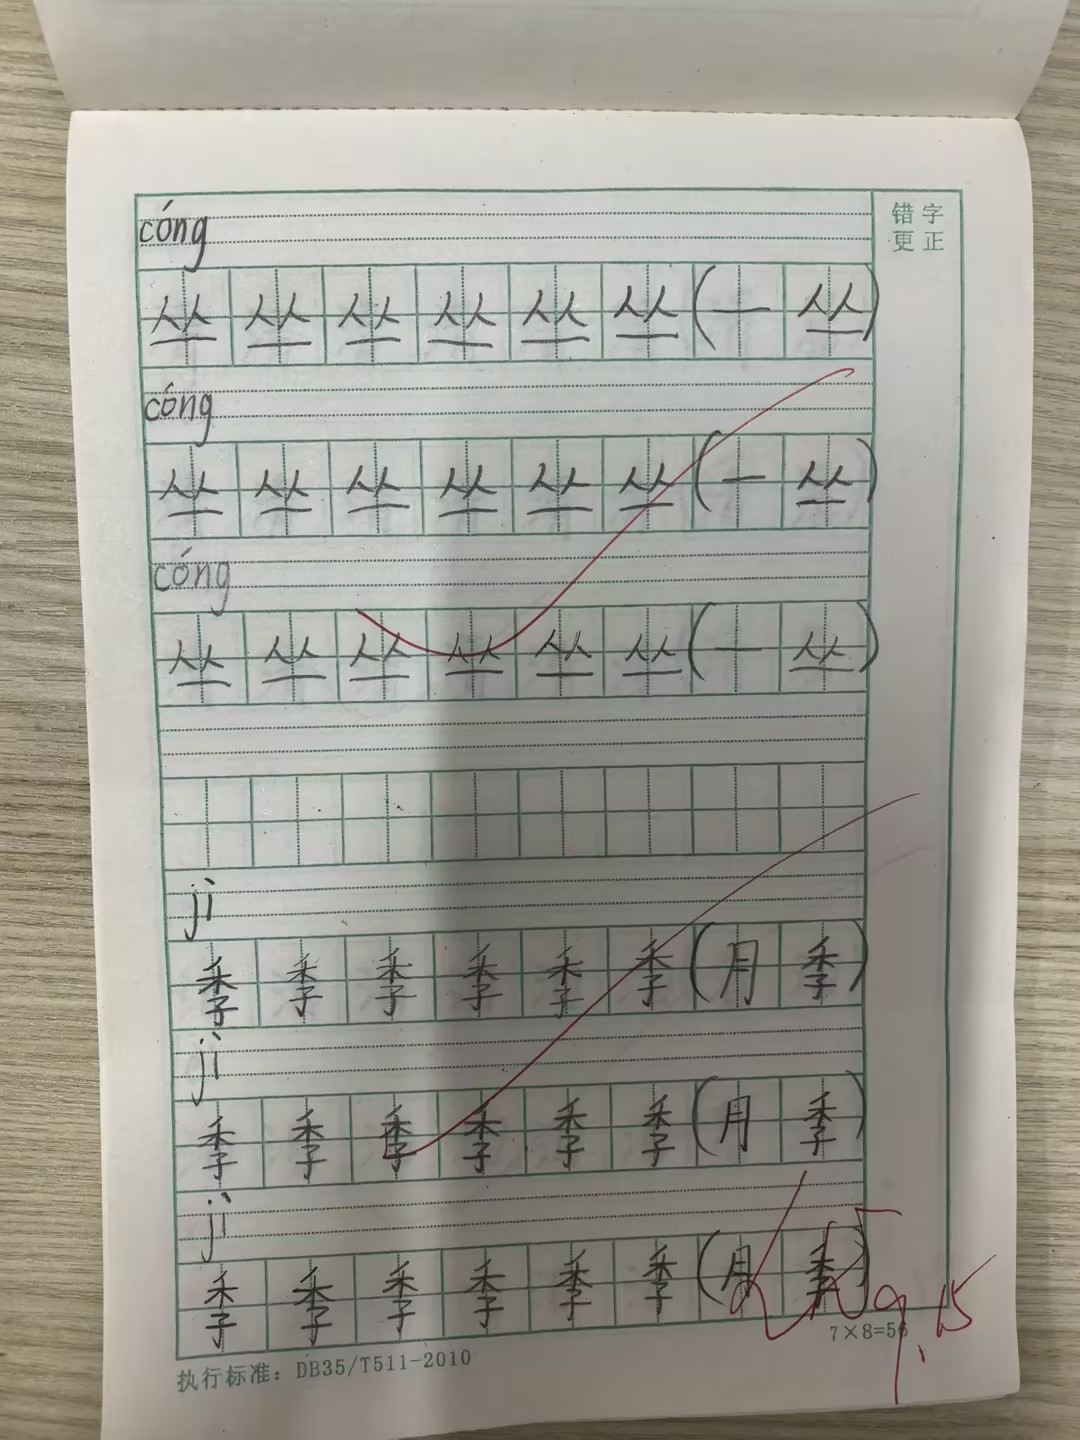 错字
更正
cóng
丛丛丛丛丛丛(一丛)
cóng
丛丛丛丛丛丛(一丛)
cóng
丛丛丛丛丛丛(一丛)
jì
季季季季季季(月季)
jì
季季季季季季(月季)
jì
季季季季季季(月季)
9.15
7×8=56
执行标准：DB35/T511-2010